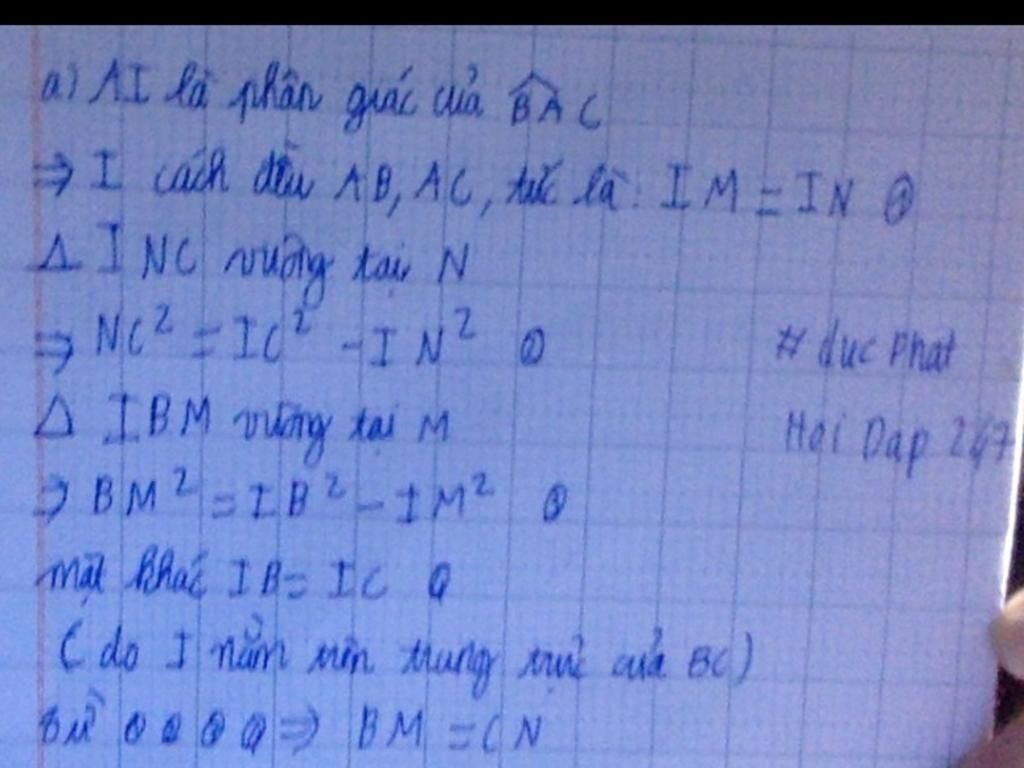 a) AI là phân giác của BAC
⇒ I cách đều AB, AC, tức là: IM = IN ①
Δ INC vuông tại N
⇒ NC² = IC² - IN² ②
# duc Phat
Δ IBM vuông tại M
Hoi Dap 247
⇒ BM² = IB² - IM² ③
mặt khác IB = IC ④
( do I nằm trên trung trực của BC)
Từ ① ② ③ ④ ⇒ BM = CN